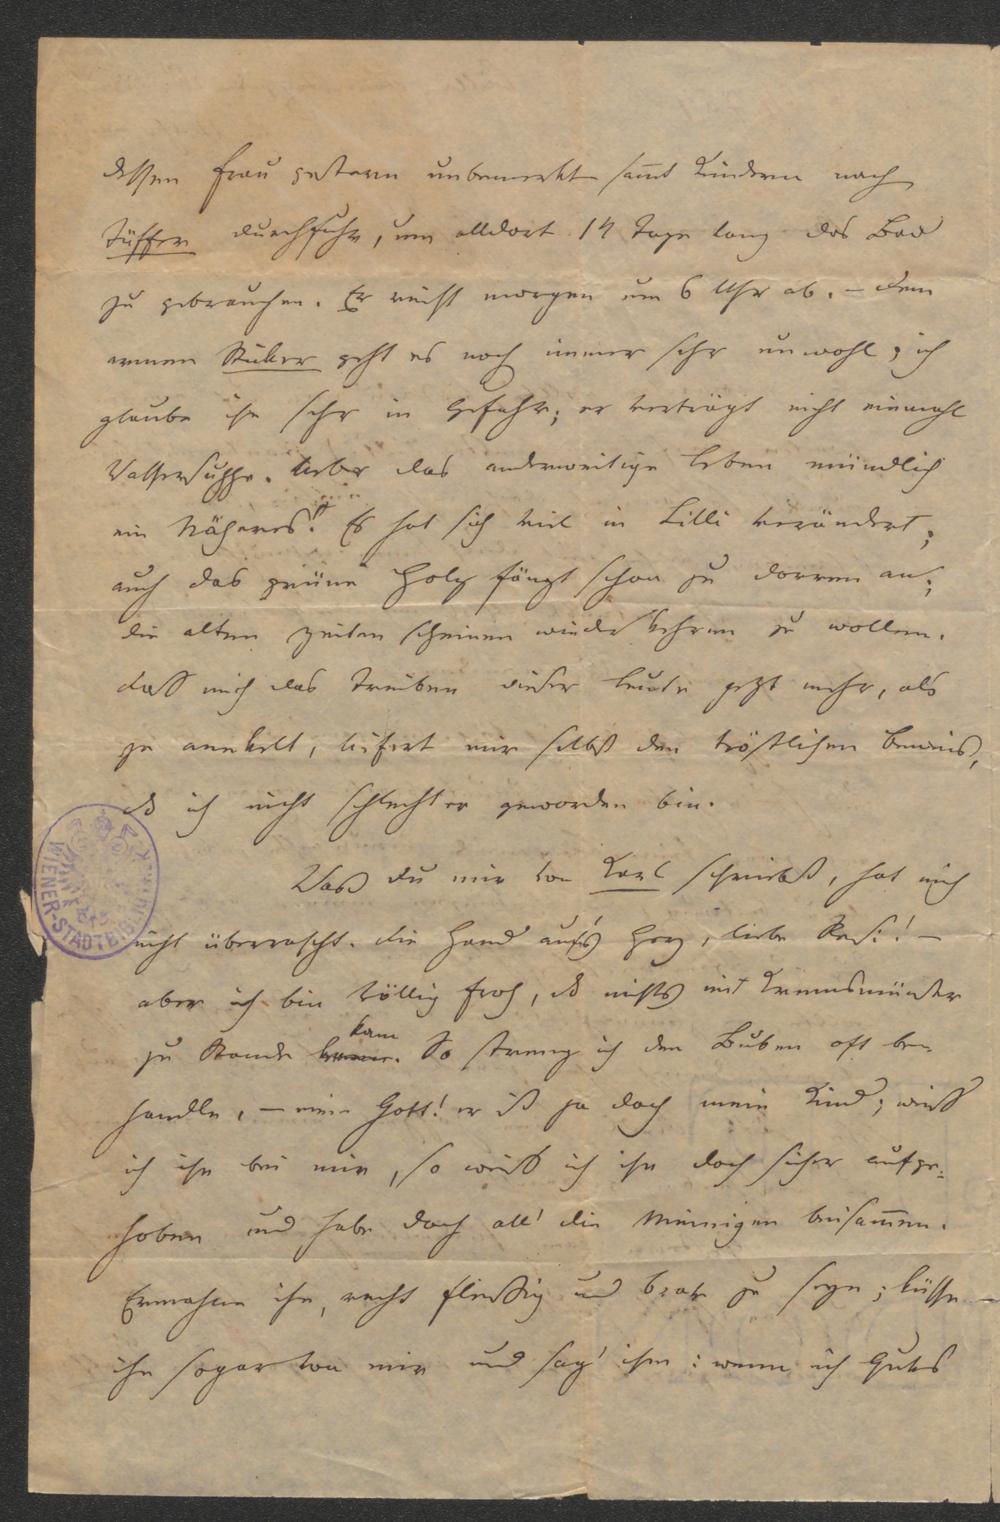 dessen Frau gestern unbemerkt samt Kindern nach
Tüffer durchfuhr, um alldort 14 Tage lang das Bad
zu gebrauchen. Er reist morgen um 6 Uhr ab. – Dem
armen Stuker geht es noch immer sehr unwohl; ich
glaube ihn sehr in Gefahr; er verträgt nicht einmahl
Wassersuppe. Ueber das anderweitige Leben mündlich
ein Näheres! Es hat sich viel in Cilli verändert;
auch das grüne Holz fängt schon zu dorren an;
die alten Zeiten scheinen wiederkehren zu wollen.
Daß mich das Treiben dieser Leute jetzt mehr, als
je anekelt, liefert mir selbst den tröstlichen Beweis,
daß ich nicht schlechter geworden bin.
Was du mir von Karl schreibst, hat mich
nicht überrascht. Die Hand auf's Herz, liebe Resi! –
aber ich bin völlig froh, daß nichts mit Kremsmünster
zu Stande kam. So streng ich den Buben oft be-
handle, – mein Gott! er ist ja doch mein Kind; weiß
ich ihn bei mir, so weiß ich ihn doch sicher aufge-
hoben und habe doch all' die Meinigen beisammen.
Ermahne ihn, recht fleißig und brav zu seyn; küsse
ihn sogar von mir und sag' ihm: wenn ich Gutes
WIENER-STADTBIBLIOTHEK